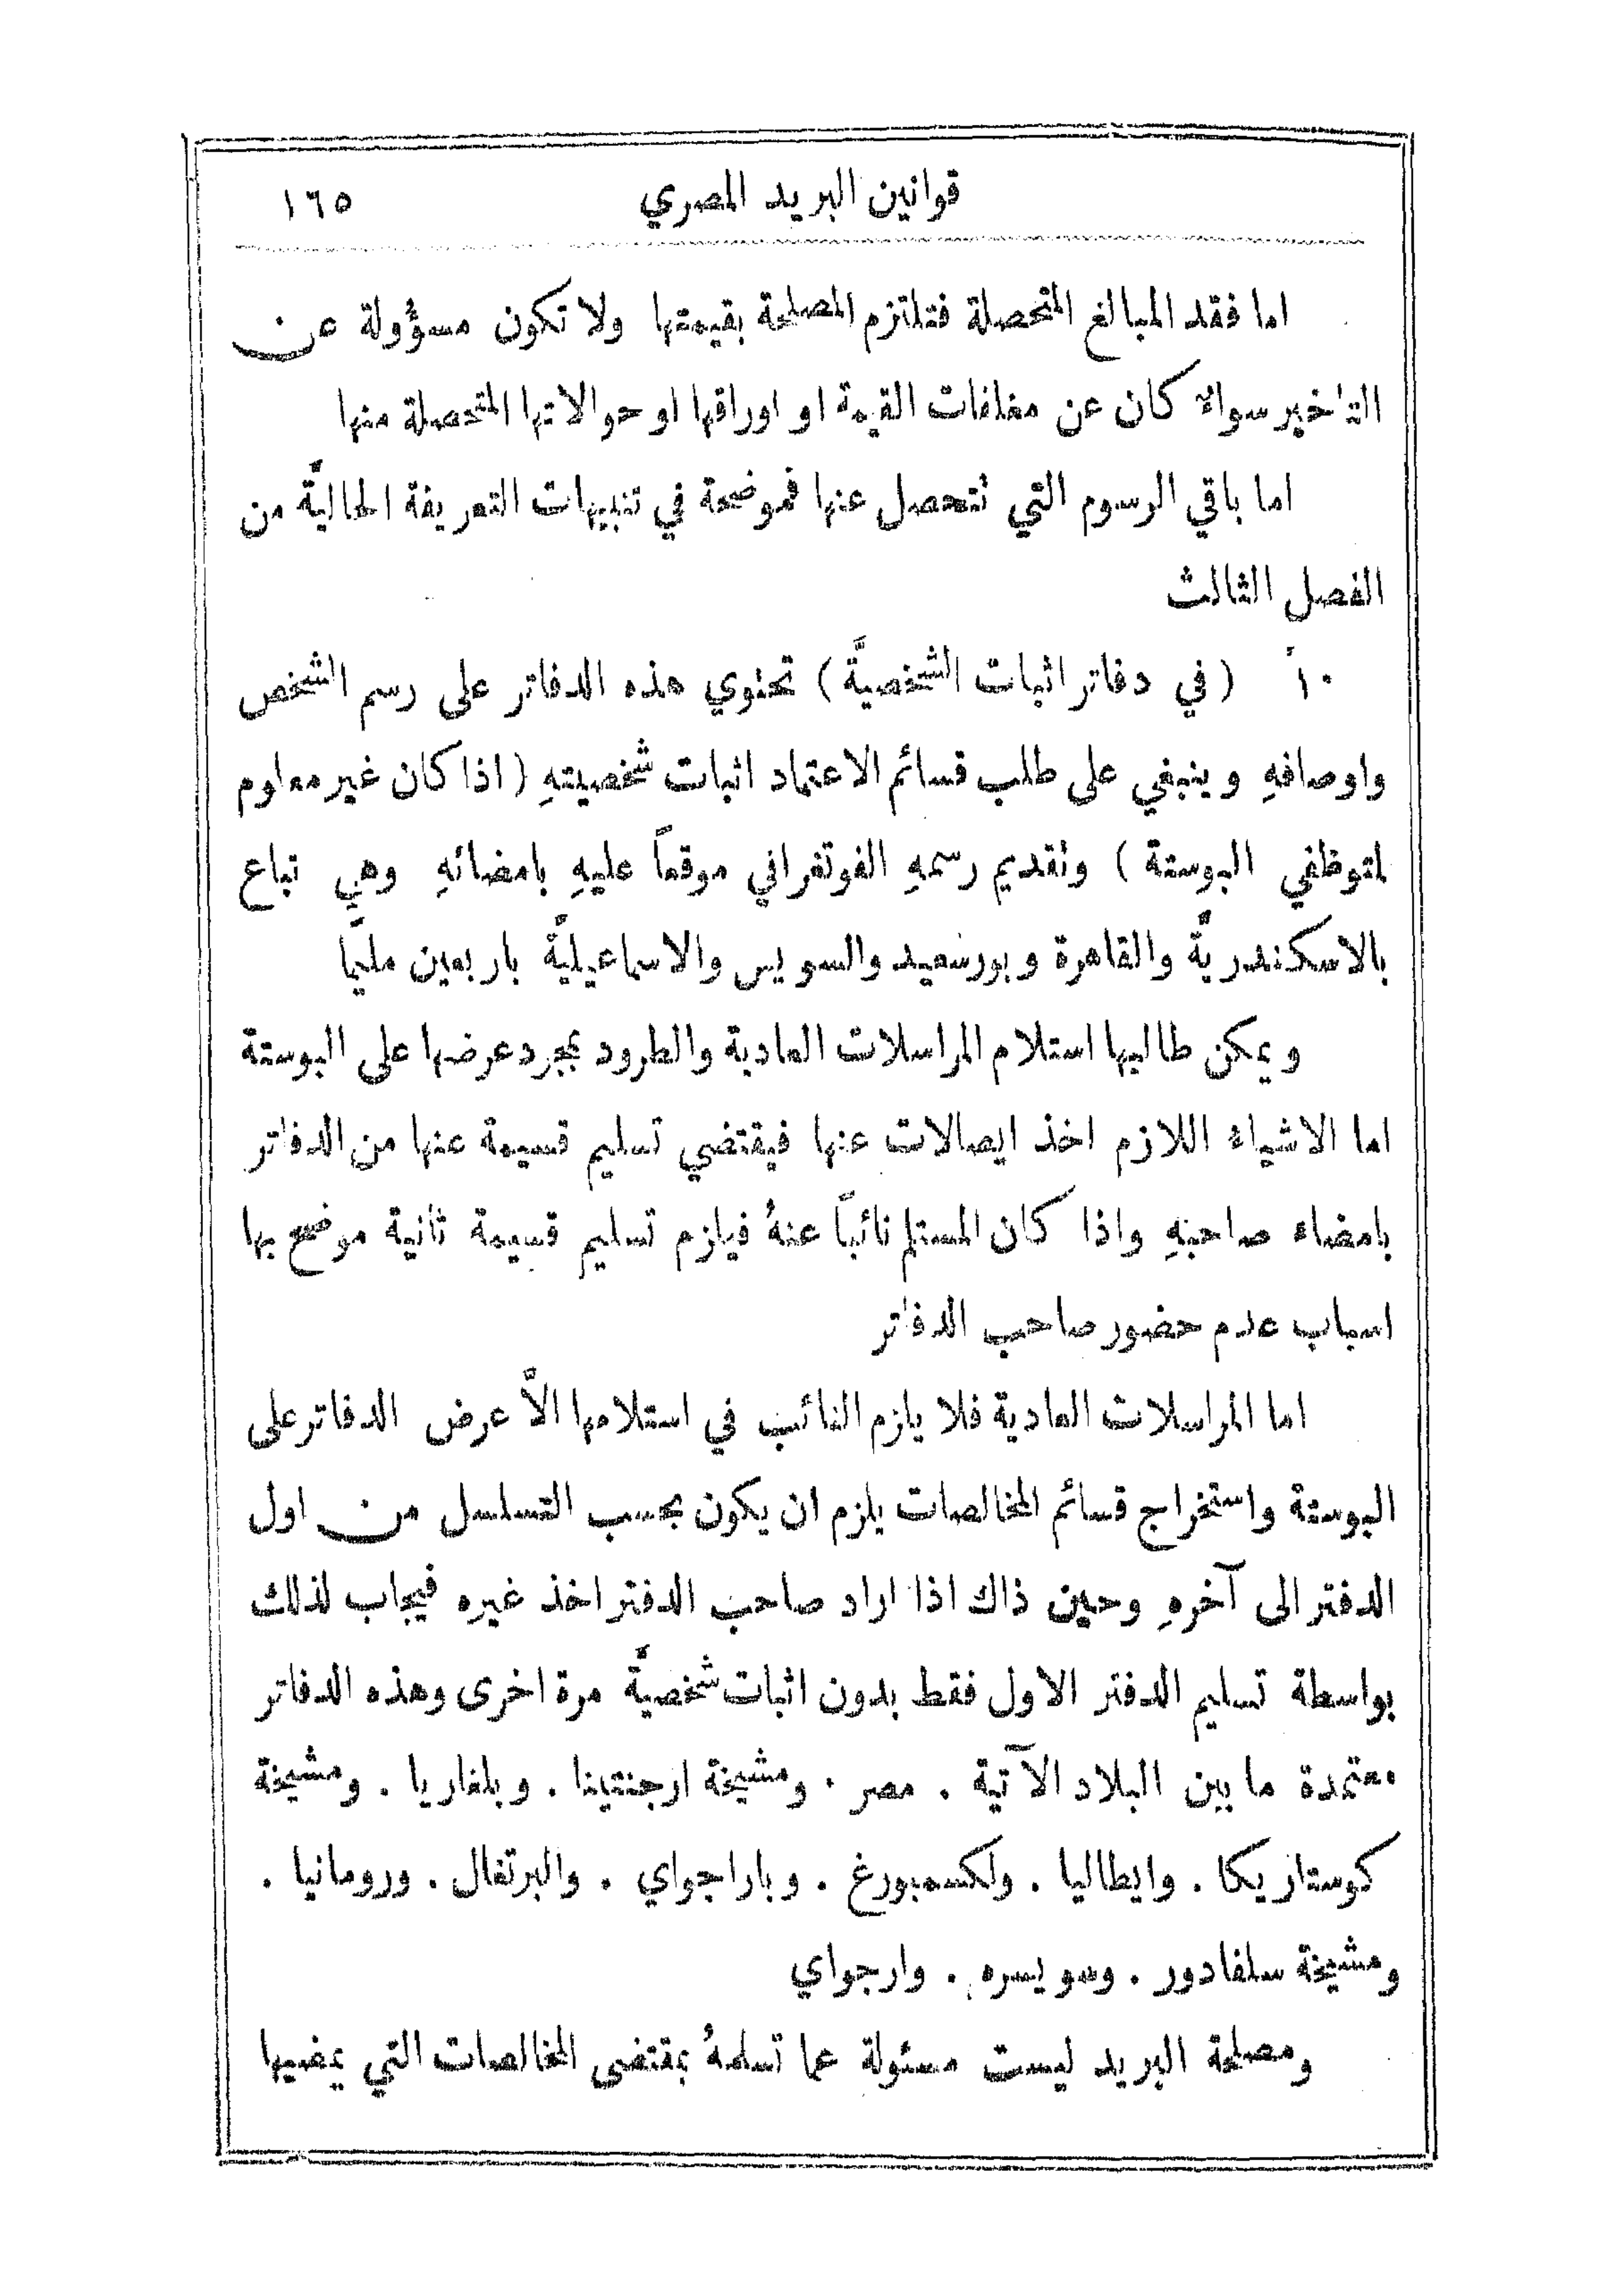 قوانين البريد المصري ١٦٥
اما فقد المبالغ المتحصلة فتلتزم المصلحة بقيمتها ولا تكون مسؤولة عن
التاخير سواء كان عن مغلفات القيمة او اوراقها او حوالاتها المتحصلة منها
اما باقي الرسوم التي تتحصل عنها فموضحة في تنبيهات التعريفة الحاليَّة من
الفصل الثالث
١٠ً (في دفاتر اثبات الشخصيَّة) تحتوي هذه الدفاتر على رسم الشخص
واوصافهِ وينبغي على طلب قسائم الاعتماد اثبات شخصيتهِ (اذا كان غير معلوم
لمتوظفي البوستة) وتقديم رسمهِ الفوتغرافي موقعاً عليهِ بامضائهِ وهي تباع
بالاسكندريَّة والقاهرة وبورسعيد والسويس والاسماعيليَّة باربعين مليَّما
ويمكن طالبها استلام المراسلات العادية والطرود بمجرد عرضها على البوستة
اما الاشياء اللازم اخذ ايصالات عنها فيقتضي تسليم قسيمة عنها من الدفاتر
بامضاء صاحبهِ واذا كان المستلم نائباً عنهُ فيلزم تسليم قسيمة ثانية موضح بها
اسباب عدم حضور صاحب الدفاتر
اما المراسلات العادية فلا يلزم النائب في استلامها الاَّ عرض الدفاتر على
البوستة واستخراج قسائم المخالصات يلزم ان يكون بحسب التسلسل من اول
الدفتر الى آخرهِ وحين ذاك اذا اراد صاحب الدفتر اخذ غيره فيجاب لذلك
بواسطة تسليم الدفتر الاول فقط بدون اثبات شخصيَّة مرة اخرى وهذه الدفاتر
معتمدة ما بين البلاد الآتية . مصر . ومشيخة ارجنتينا . وبلغاريا . ومشيخة
كوستاريكا . وايطاليا . ولكسمبورغ . وباراجواي . والبرتغال . ورومانيا .
ومشيخة سلفادور . وسويسره . وارجواي
ومصلحة البريد ليست مسئولة عما تسلمهُ بمقتضى المخالصات التي يمضيها